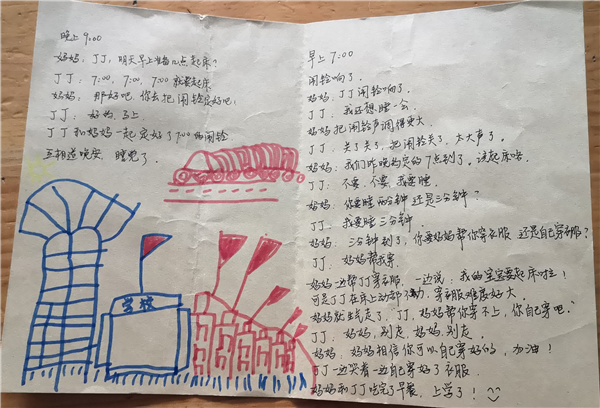 晚上 9:00
妈妈：JJ，明天早上准备几点起床？
JJ：7:00，7:00，7:00 就要起床
妈妈：那好吧，你去把闹铃定好吧！
JJ：好的，马上
JJ和妈妈一起定好了7:00的闹铃
互相道晚安，睡觉了。
学校
早上 7:00
闹铃响了，
妈妈：JJ 闹铃响了，
JJ：我还想睡一会
妈妈把闹铃声调得更大
JJ：关了关了，把闹铃关了，太大声了，
妈妈：我们昨晚约定的7点到了，该起床咯
JJ：不要，不要，我要睡，
妈妈：你要睡两分钟还是三分钟？
JJ：我要睡三分钟，
妈妈：三分钟到了，你要妈妈帮你穿衣服还是自己穿衣服？
JJ：妈妈帮我穿，
妈妈一边帮JJ穿衣服，一边说，我的宝宝要起床啦！
可是JJ在床上动都不动，穿衣服难度好大
妈妈就生气走了，JJ，妈妈帮你穿不上，你自己穿吧，
JJ：妈妈，别走，妈妈，别走，
妈妈：妈妈相信你可以自己穿好的，加油！
JJ一边哭着一边自己穿好了衣服，
妈妈和JJ吃完了早餐，上学了！